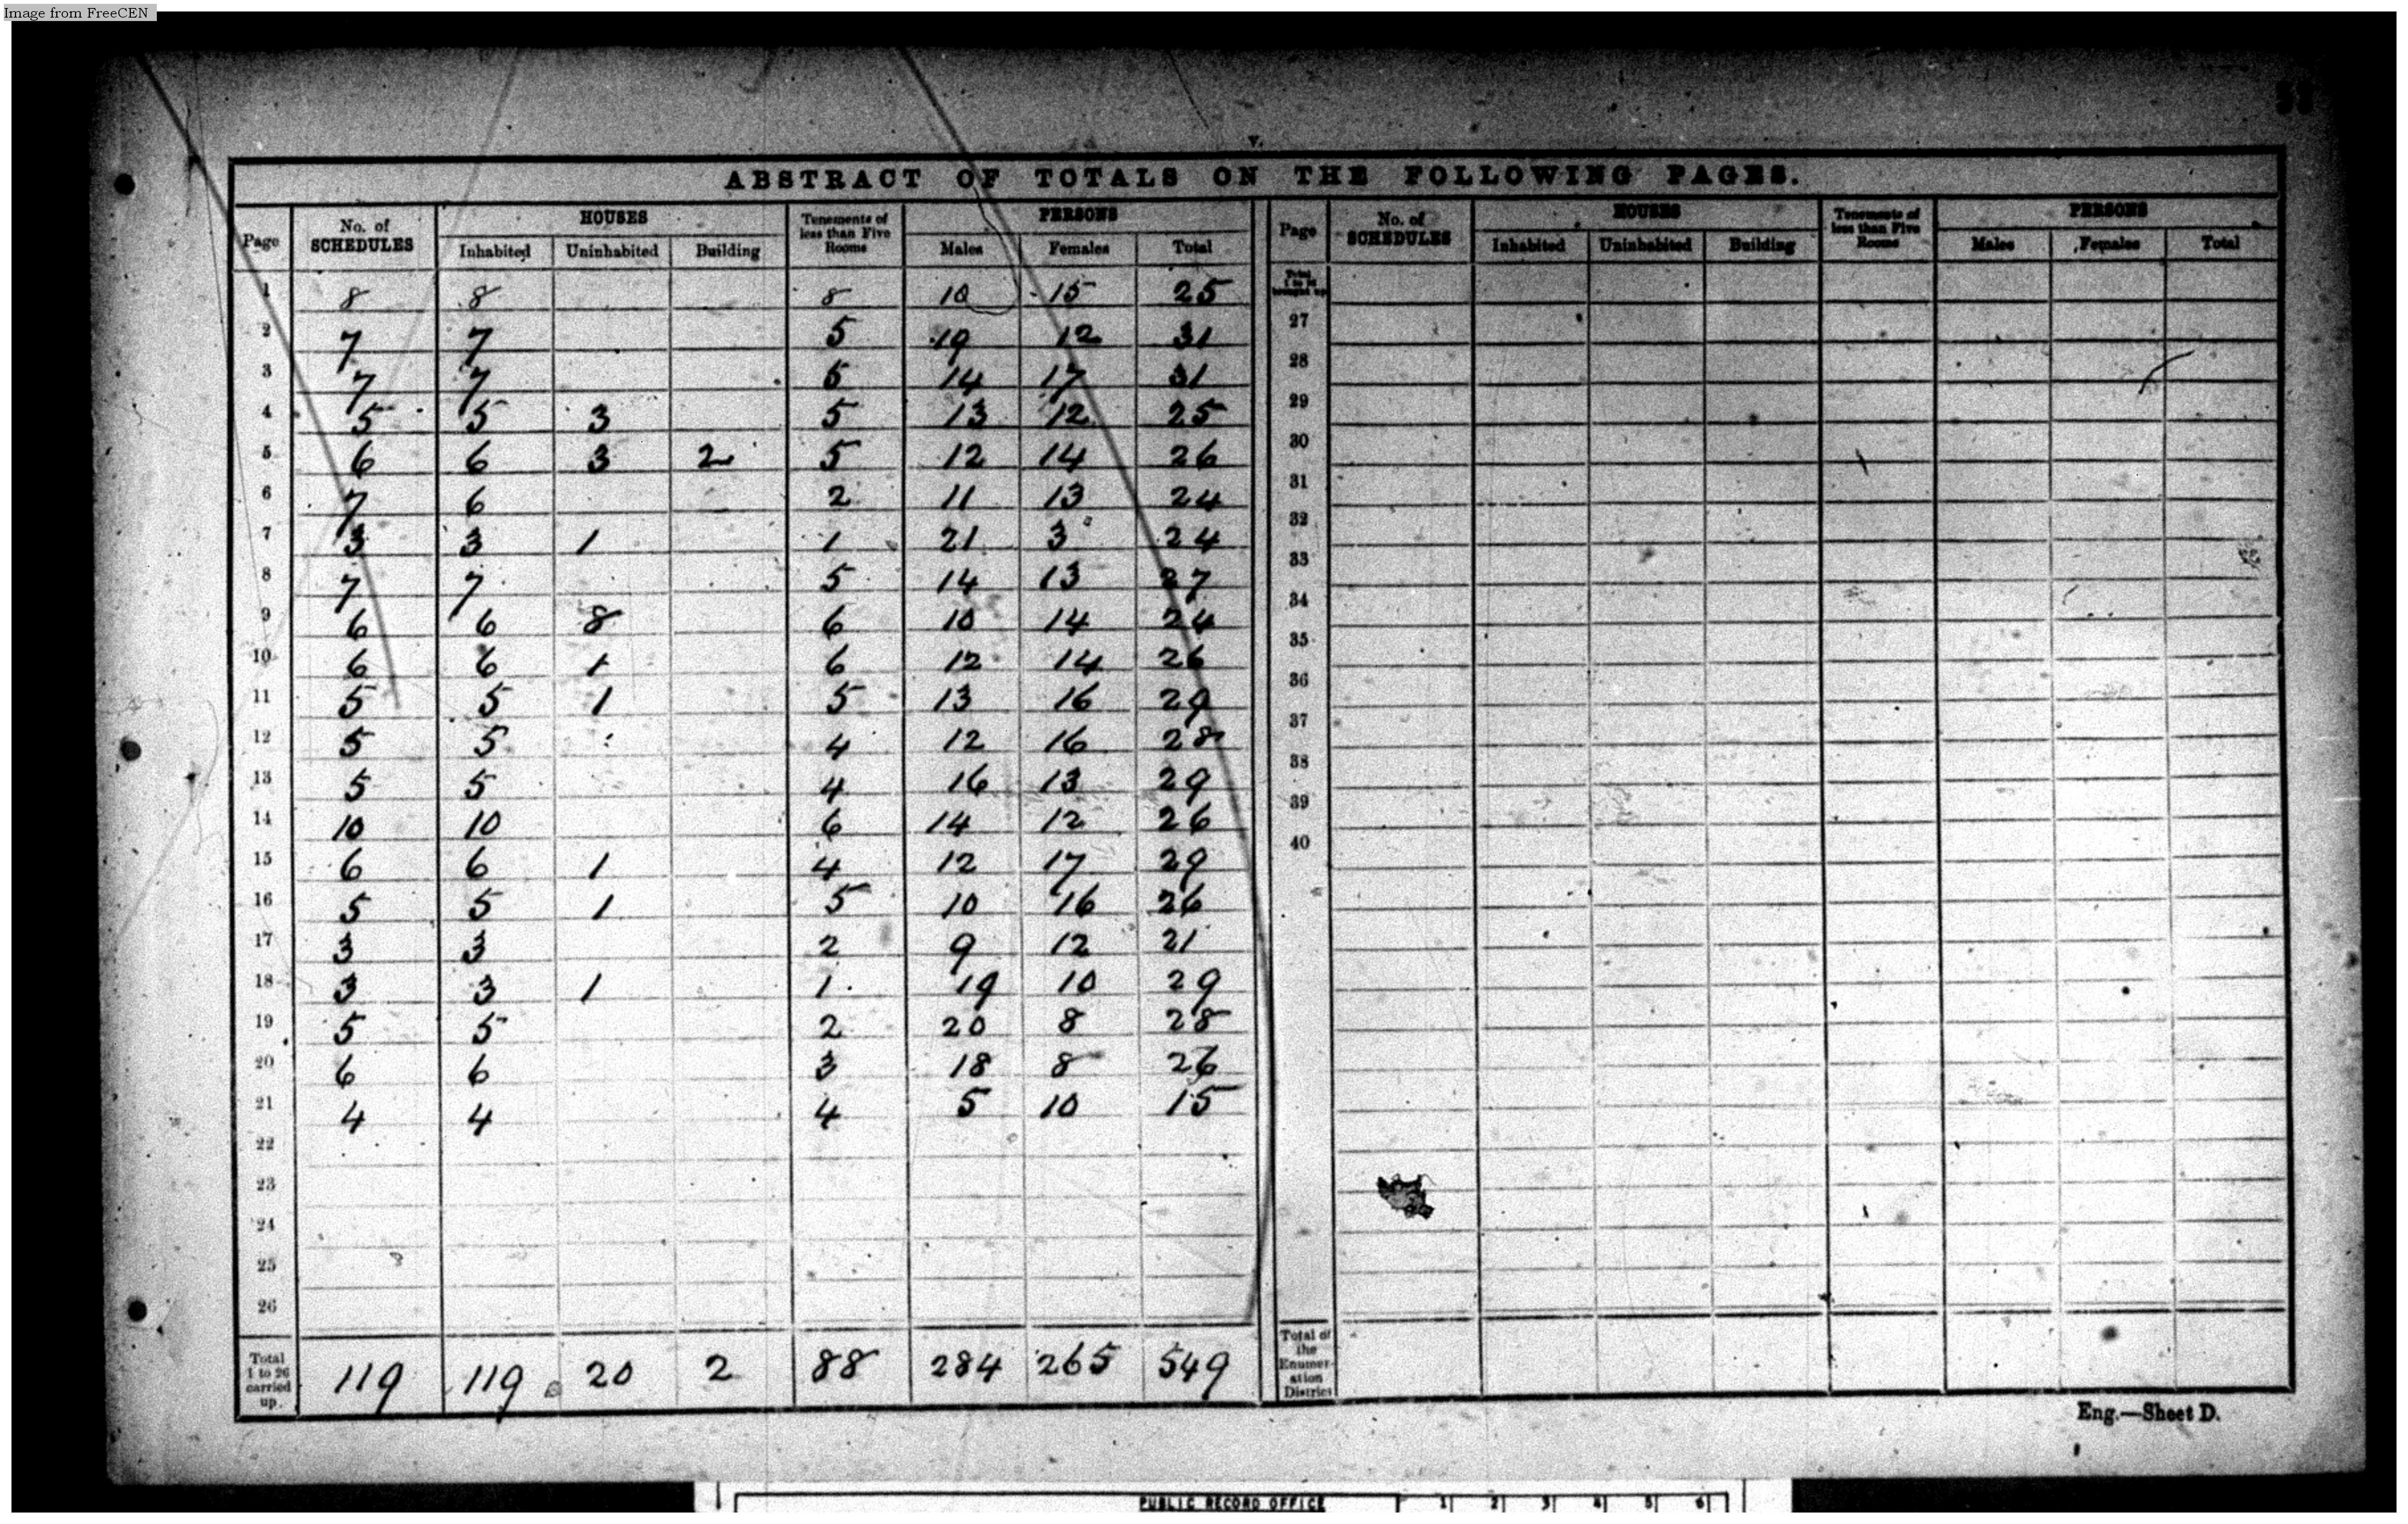 Image from FreeCEN
v.
ABSTRACT OF TOTALS ON THE FOLLOWING PAGES.
Page No. of SCHEDULES HOUSES Inhabited Uninhabited Building Tenements of less than Five Rooms PERSONS Males Females Total
1 8 8 8 10 15 25
2 7 7 5 19 12 31
3 7 7 5 14 17 31
4 5 5 3 5 13 12 25
5 6 6 3 2 5 12 14 26
6 7 6 2 11 13 24
7 3 3 1 1 21 3 24
8 7 7 5 14 13 27
9 6 6 8 6 10 14 24
10 6 6 1 6 12 14 26
11 5 5 1 5 13 16 29
12 5 5 4 12 16 28
13 5 5 4 16 13 29
14 10 10 6 14 12 26
15 6 6 1 4 12 17 29
16 5 5 1 5 10 16 26
17 3 3 2 9 12 21
18 3 3 1 1 19 10 29
19 5 5 2 20 8 28
20 6 6 3 18 8 26
21 4 4 4 5 10 15
22
23
24
25
26
Total 1 to 26 carried up. 119 119 20 2 88 284 265 549
Page No. of SCHEDULES HOUSES Inhabited Uninhabited Building Tenements of less than Five Rooms PERSONS Males Females Total
Total 1 to 26 brought up
27
28
29
30
31
32
33
34
35
36
37
38
39
40
Total of the Enumeration District
Eng.—Sheet D.
PUBLIC RECORD OFFICE 1 2 3 4 5 6